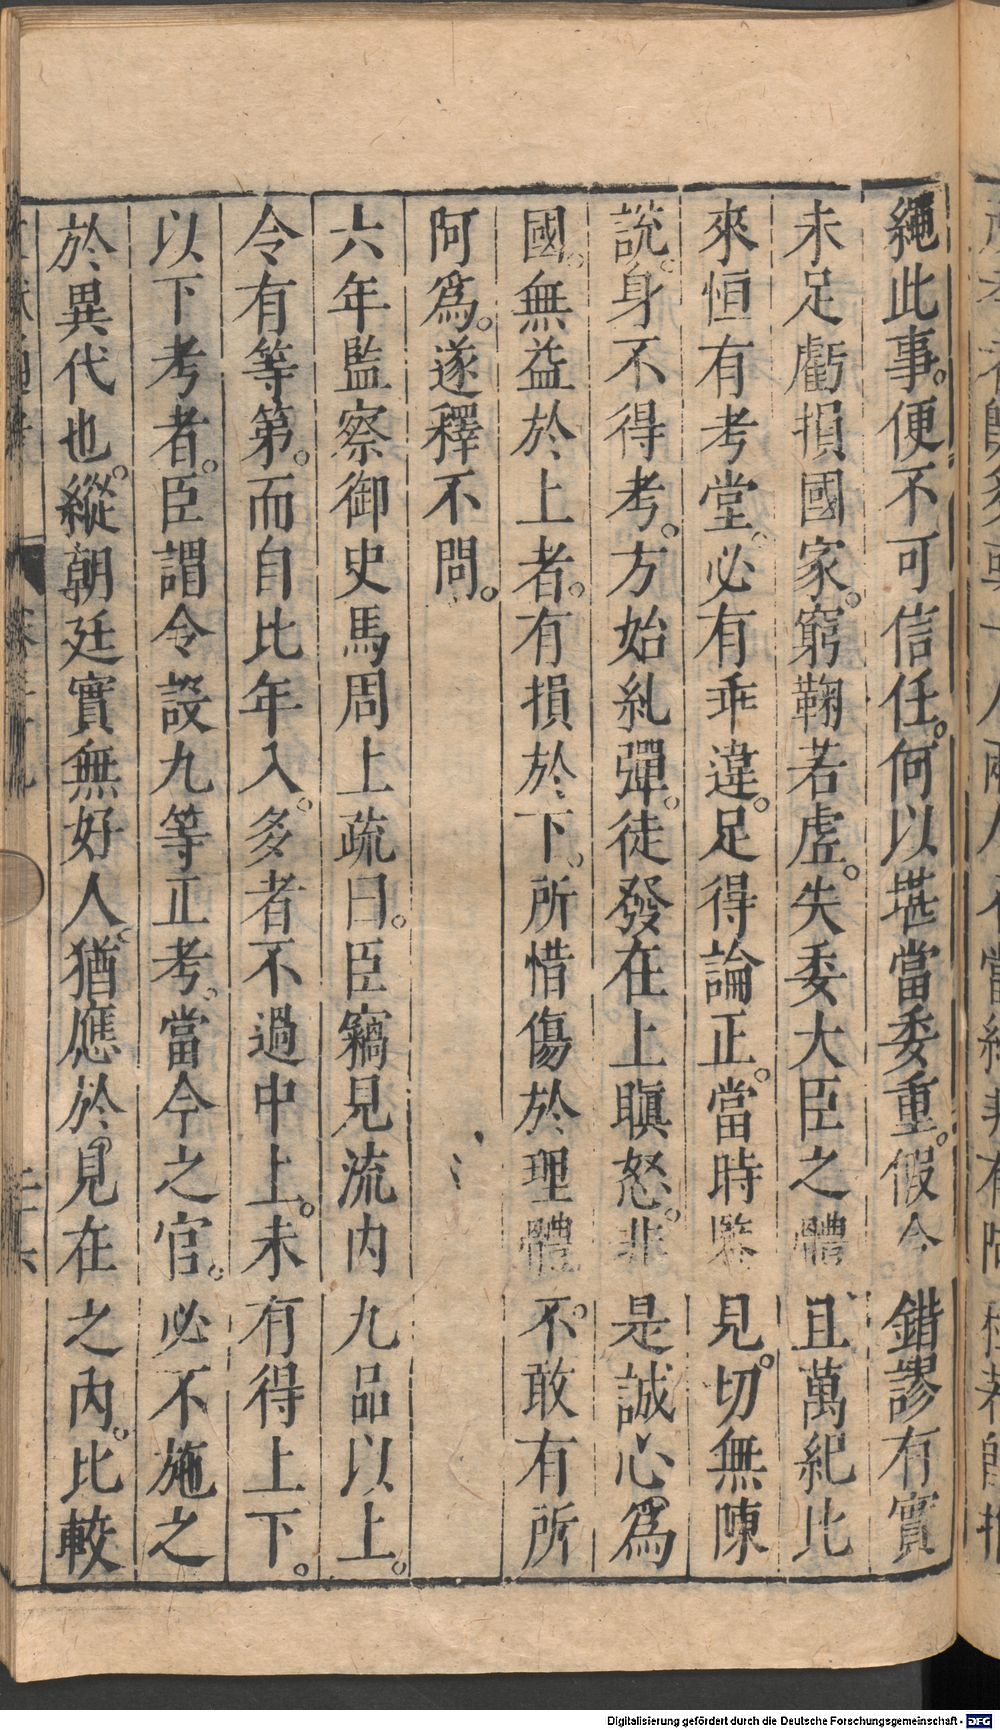 繩此事。便不可信任。何以堪當委重。假令錯謬有實
未足虧損國家。窮鞠若虛。失委大臣之體且萬紀比
來恒有考堂。必有乖違。足得論正。當時鑒見。切無陳
說。身不得考。方始糺彈。徒發在上瞋怒。非是誠心爲
國。無益於上者。有損於下。所惜傷於理體。不敢有所
阿爲。遂釋不問。
六年監察御史馬周上疏曰。臣竊見流内九品以上。
令有等第。而自比年入。多者不過中上。未有得上下
以下考者。臣謂令設九等正考。當今之官。必不施之
於異代也。縱朝廷實無好人。猶應於見在之内。比較
Digitalisierung gefördert durch die Deutsche Forschungsgemeinschaft - DFG